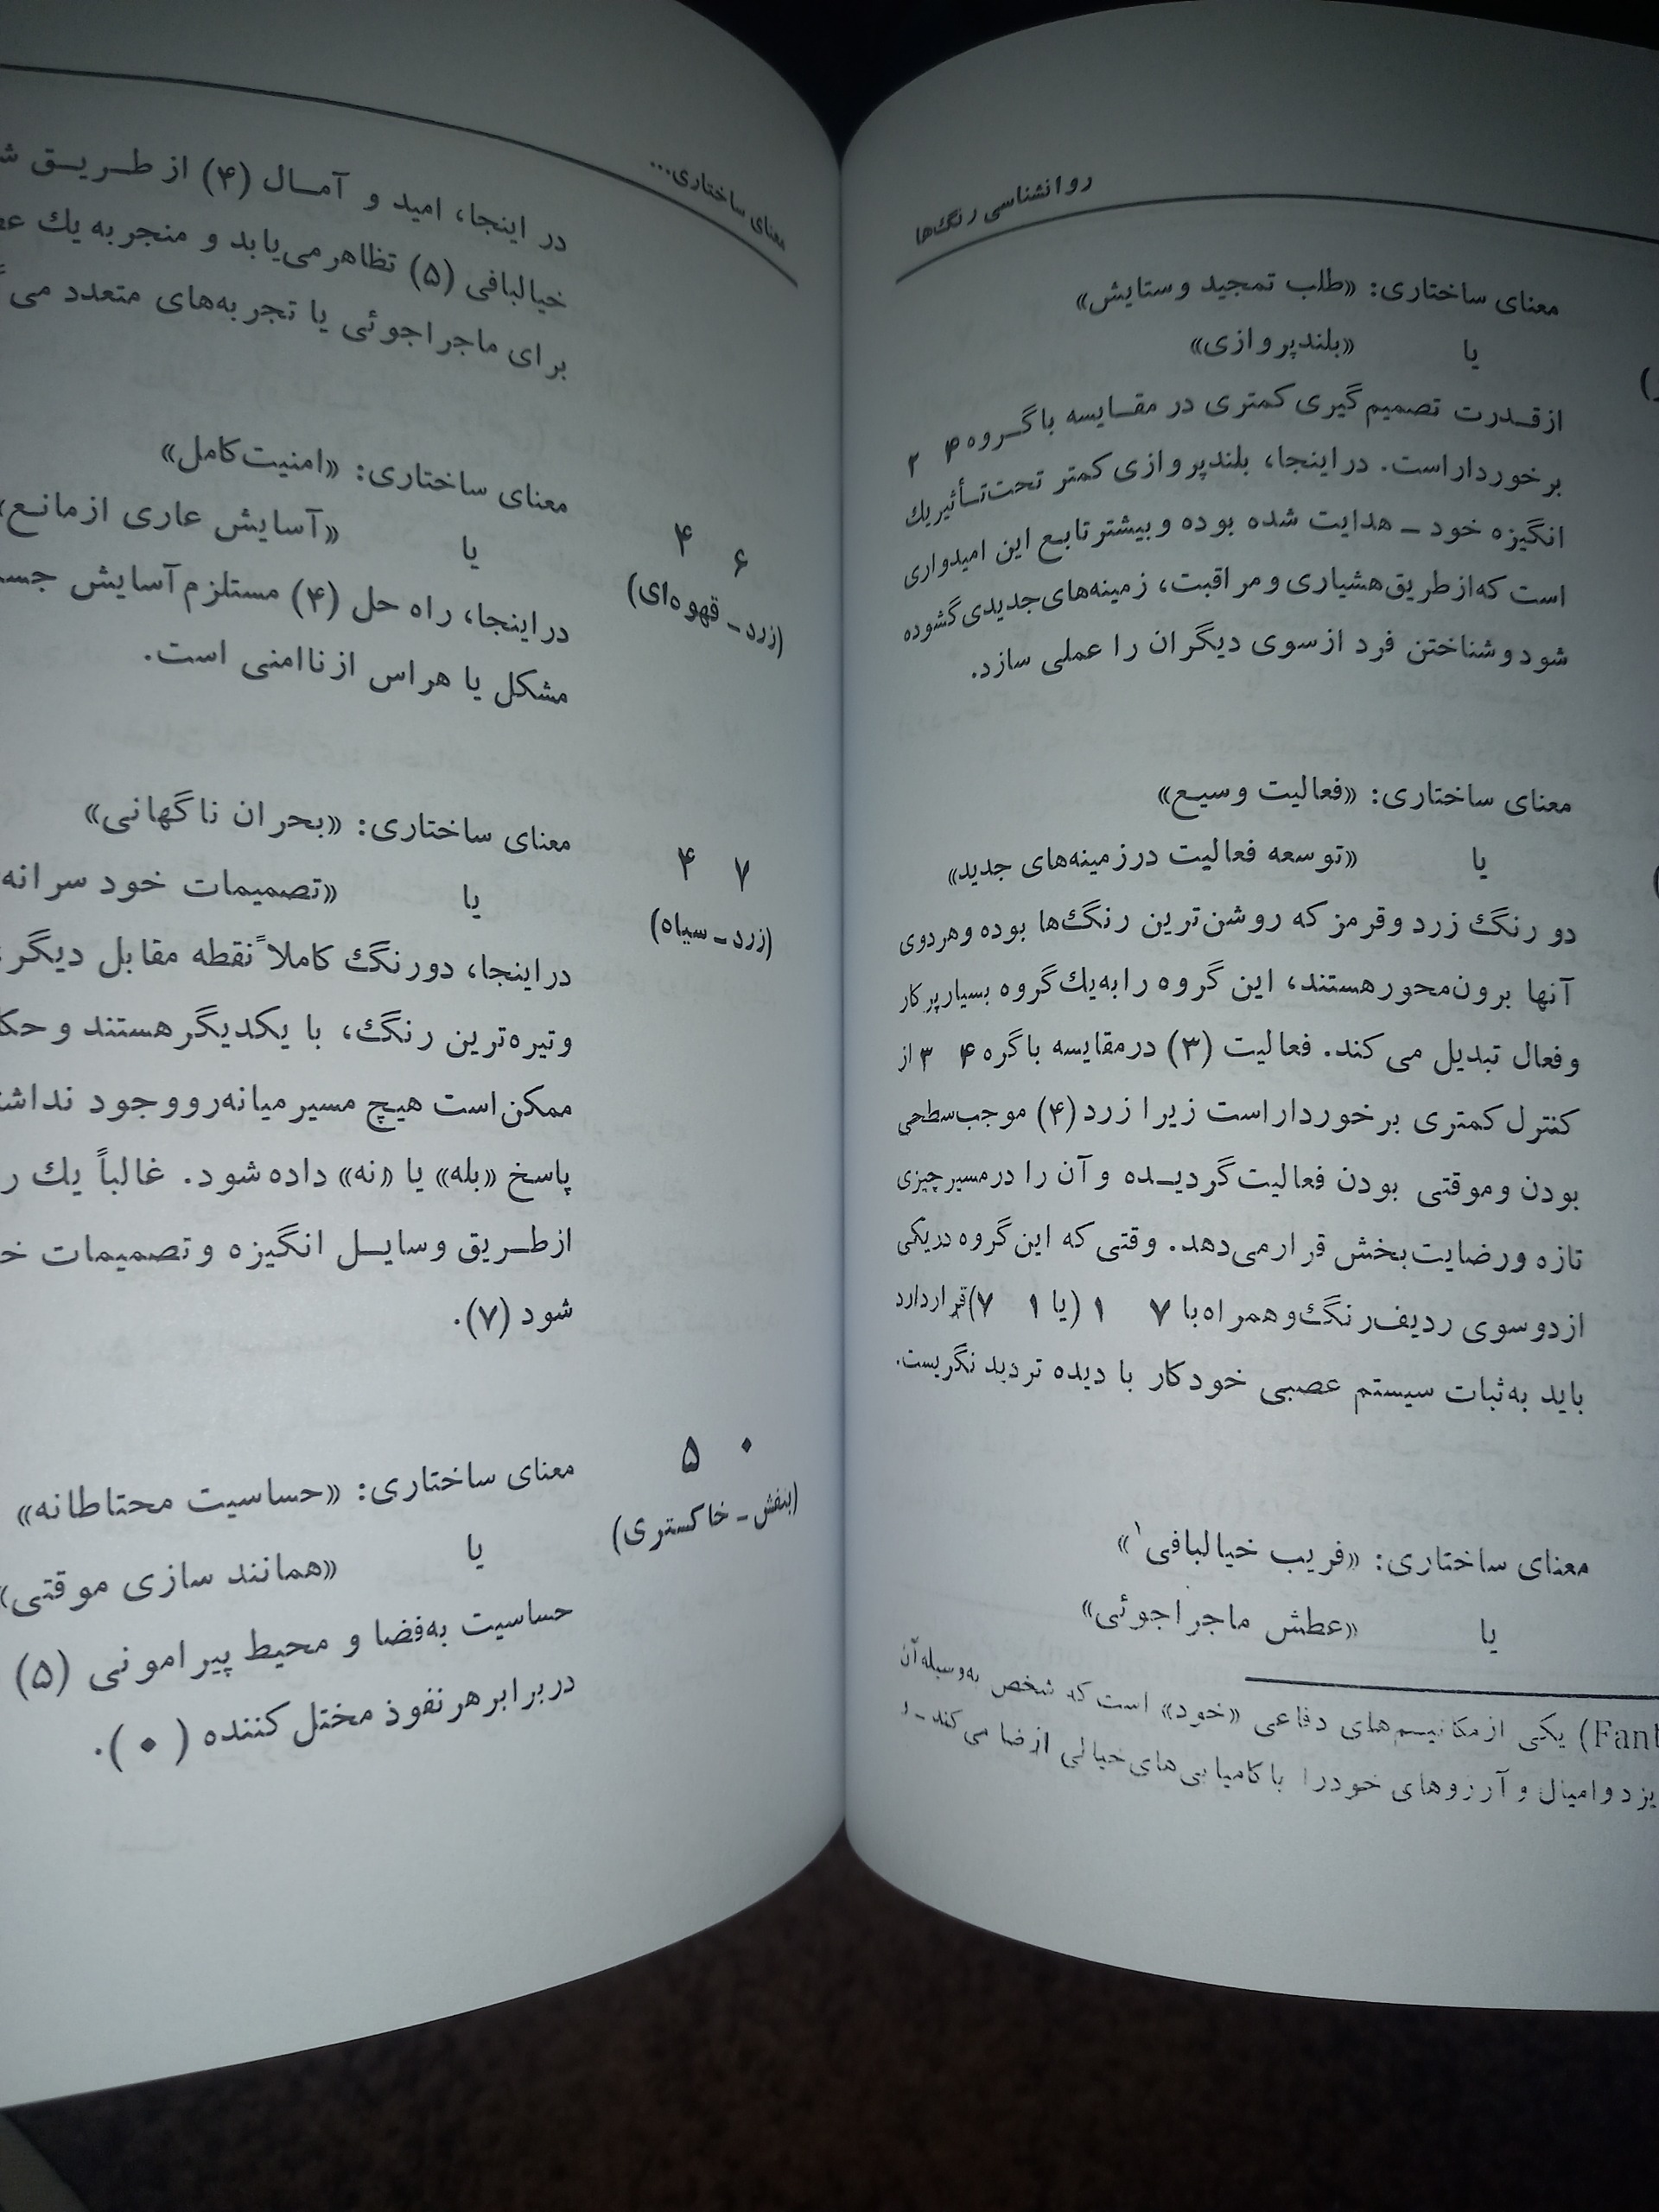 روانشناسی رنگ‌ها
معنای ساختاری: «طلب تمجید و ستایش»
یا «بلندپروازی»
از قدرت تصمیم گیری کمتری در مقایسه با گروه ۴ ۲
برخوردار است. در اینجا، بلندپروازی کمتر تحت تأثیر یك
انگیزه خود ـ هدایت شده بوده و بیشتر تابع این امیدواری
است که از طریق هشیاری و مراقبت، زمینه‌های جدیدی گشوده
شود و شناختن فرد از سوی دیگران را عملی سازد.
معنای ساختاری: «فعالیت وسیع»
یا «توسعه فعالیت در زمینه‌های جدید»
دو رنگ زرد و قرمز که روشن‌ترین رنگ‌ها بوده و هر دوی
آنها برون‌محور هستند، این گروه را به یك گروه بسیار پر کار
و فعال تبدیل می کند. فعالیت (۳) در مقایسه با گره ۴ ۳ از
کنترل کمتری برخوردار است زیرا زرد (۴) موجب سطحی
بودن و موقتی بودن فعالیت گردیده و آن را در مسیر چیزی
تازه و رضایت‌بخش قرار می‌دهد. وقتی که این گروه در یکی
از دو سوی ردیف رنگ و همراه با ۷ ۱ (یا ۱ ۷) قرار دارد
باید به ثبات سیستم عصبی خودکار با دیده تردید نگریست.
معنای ساختاری: «فریب خیالبافی۱»
یا «عطش ماجراجوئی»
(Fant یکی از مکانیسم‌های دفاعی «خود» است که شخص به‌وسیله آن
و امیال و آرزوهای خود را با کامیابی‌های خیالی ارضا می کند ـ
معنای ساختاری...
در اینجا، امید و آمال (۴) از طریق
خیالبافی (۵) تظاهر می‌یابد و منجر به یك
برای ماجراجوئی یا تجربه‌های متعدد می
۴ ۶ معنای ساختاری: «امنیت کامل»
(زرد ـ قهوه‌ای) یا «آسایش عاری از مانع»
در اینجا، راه حل (۴) مستلزم آسایش
مشکل یا هراس از ناامنی است.
۴ ۷ معنای ساختاری: «بحران ناگهانی»
(زرد ـ سیاه) یا «تصمیمات خود سرانه
در اینجا، دو رنگ کاملاً نقطه مقابل دیگر
و تیره‌ترین رنگ، با یکدیگر هستند و
ممکن است هیچ مسیر میانه‌رو وجود
پاسخ «بله» یا «نه» داده شود. غالباً یك
از طریق وسایل انگیزه و تصمیمات
شود (۷).
۵ ۰ معنای ساختاری: «حساسیت محتاطانه»
(بنفش ـ خاکستری) یا «همانند سازی موقتی»
حساسیت به فضا و محیط پیرامونی (۵)
در برابر هر نفوذ مختل کننده (۰).